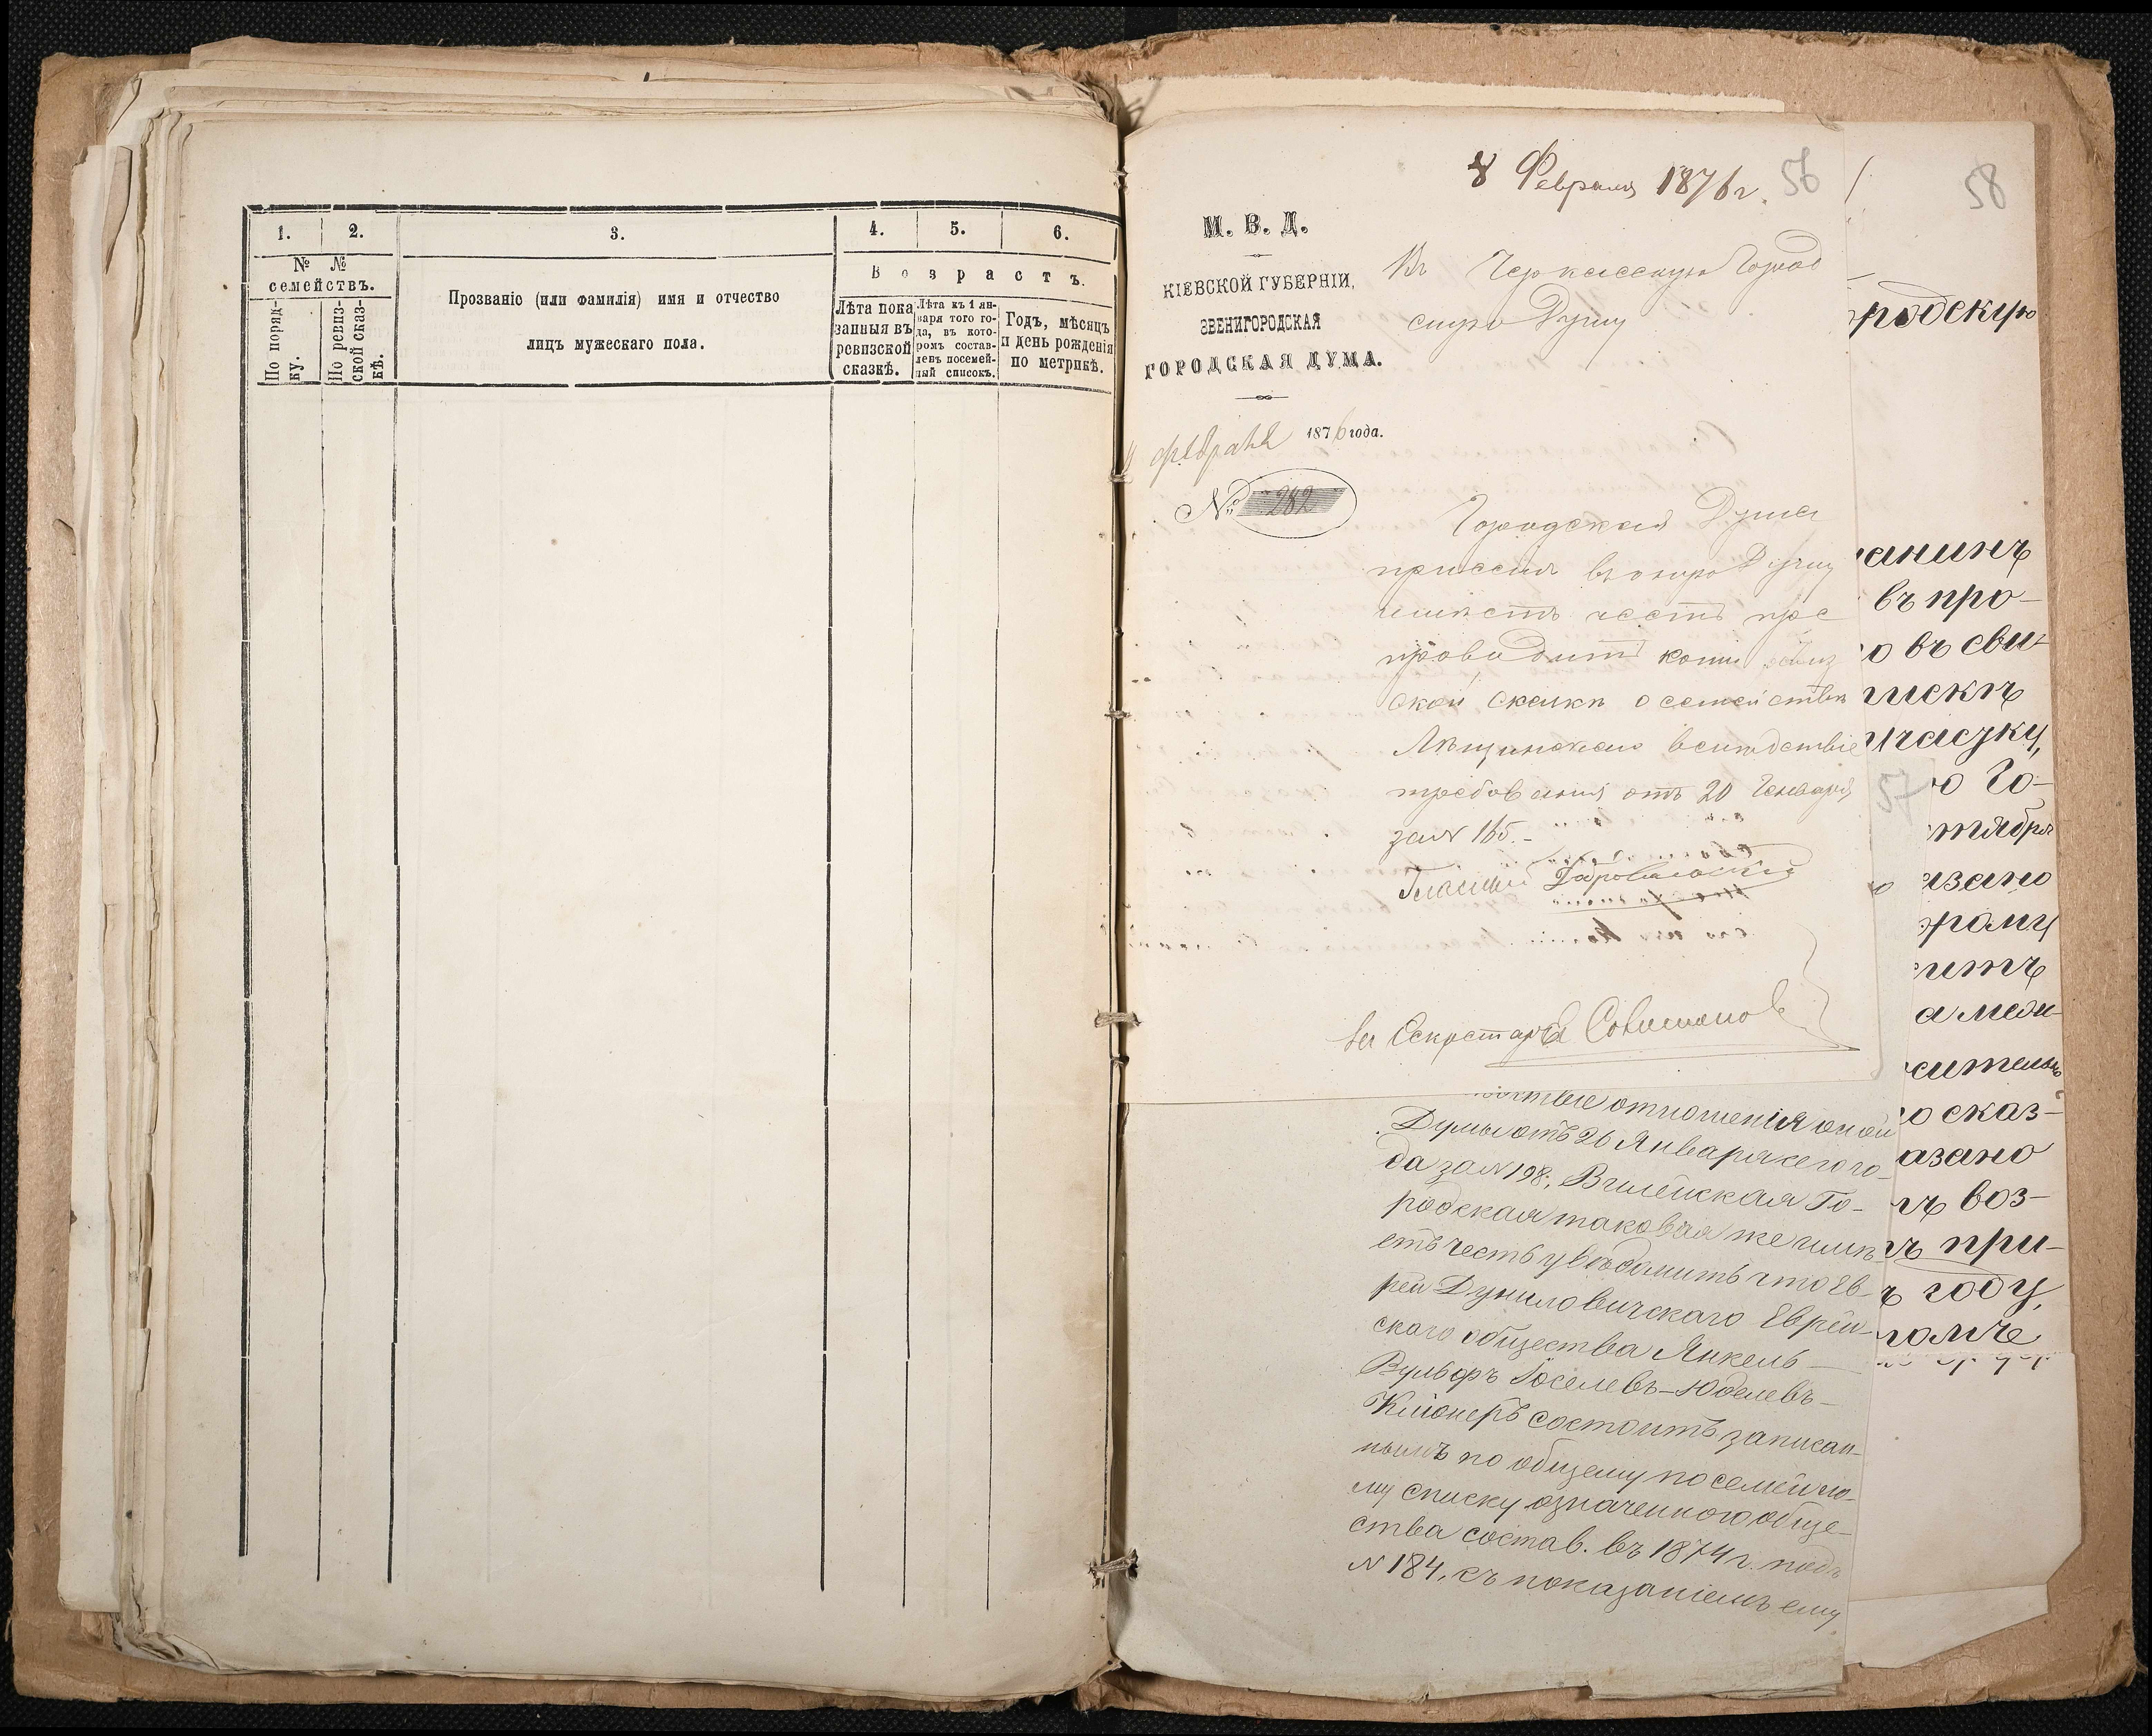 1.
2.
3.
4.
5.
6.
№ №
семействъ.
По поряд-
ку.
По ревиз-
ской сказ-
кѣ.
Прозваніе (или фамилія) имя и отчество
лицъ мужескаго пола.
Возрастъ.
Лѣта пока
занныя въ
ревизской
сказкѣ.
Лѣта къ 1 ян-
варя того го-
да, въ кото-
ромъ состав-
ленъ посемей-
ный списокъ.
Годъ, мѣсяцъ
и день рожденія
по метрикѣ.
8 Февраля 1876 г.
56
М. В. Д.
КІЕВСКОЙ ГУБЕРНІИ,
ЗВЕНИГОРОДСКАЯ
ГОРОДСКАЯ ДУМА.
февраля 1876 года.
№ 282
Въ Черкасскую Город
скую Думу
Городская Дума
при семъ въ оную Думу
имѣетъ честь пре
проводить копію ревиз
ской сказки о семействѣ
вслѣдствіе
требованія отъ 20 Генваря
за № 165.-
Гласный
За Секретаря
отношенія оной
Думы отъ 26 Января сего го-
да за № 198, Вилейская Го-
родская таковая же имѣ-
етъ честь увѣдомить что Ев-
рей Дуниловичскаго Еврей-
скаго общества Янкель-
Вульфъ Іоселевъ-Юделевъ-
состоитъ записан-
нымъ по общему посемейно-
му списку означеннаго обще-
ства состав. въ 1874 г. подъ
№ 184, съ показаніемъ ему
57
58
родскую
анинъ
въ про-
о въ сви-
писки
участку,
ю Го-
тября
азано
раму
итъ
а меди-
сительно
о сказ-
азано
ъ воз-
ъ при-
ъ году,